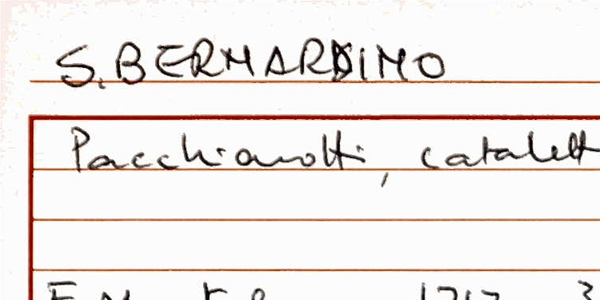 S. BERNARDINO
Pacchiarotti, catalett
1717